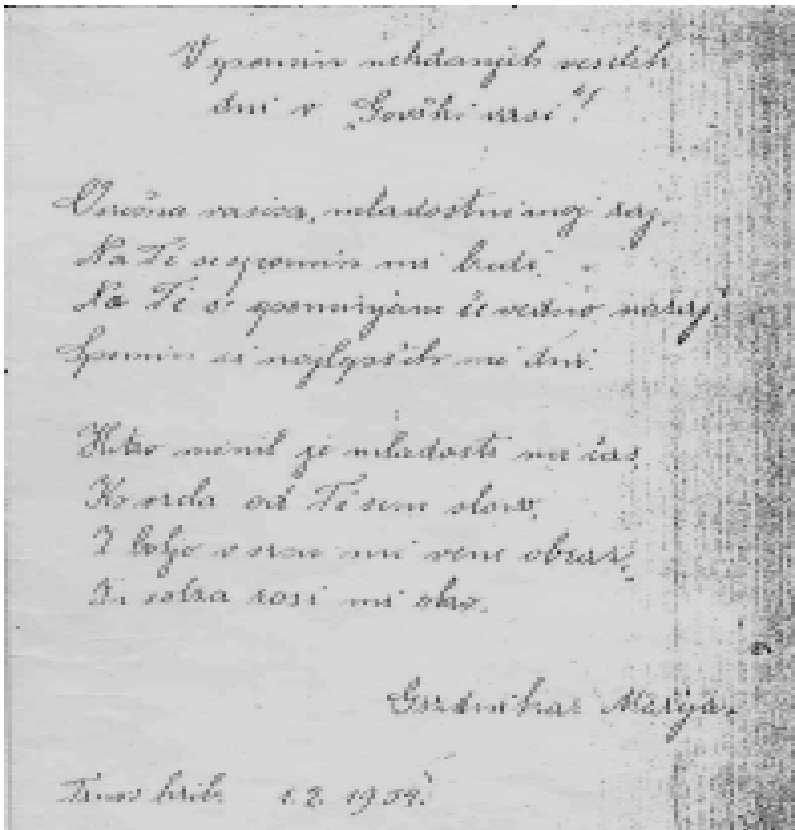 V spomin nekdanjih veselih
dni v "Govški vasi"!
vasica, mladostni moj raj,
Na Te se spomin mi budi.
Na Te se spominjam še vedno nazaj,
Spomin si najlepših mi dni.
Hitro minil je mladosti mi čas,
Ko vzela od Te sem slovo,
Z boljo v srcu mi vene obraz,
In solza rosi mi oko.
Gozdnikar Marija.
Trnov hrib. 1. 2. 1954.